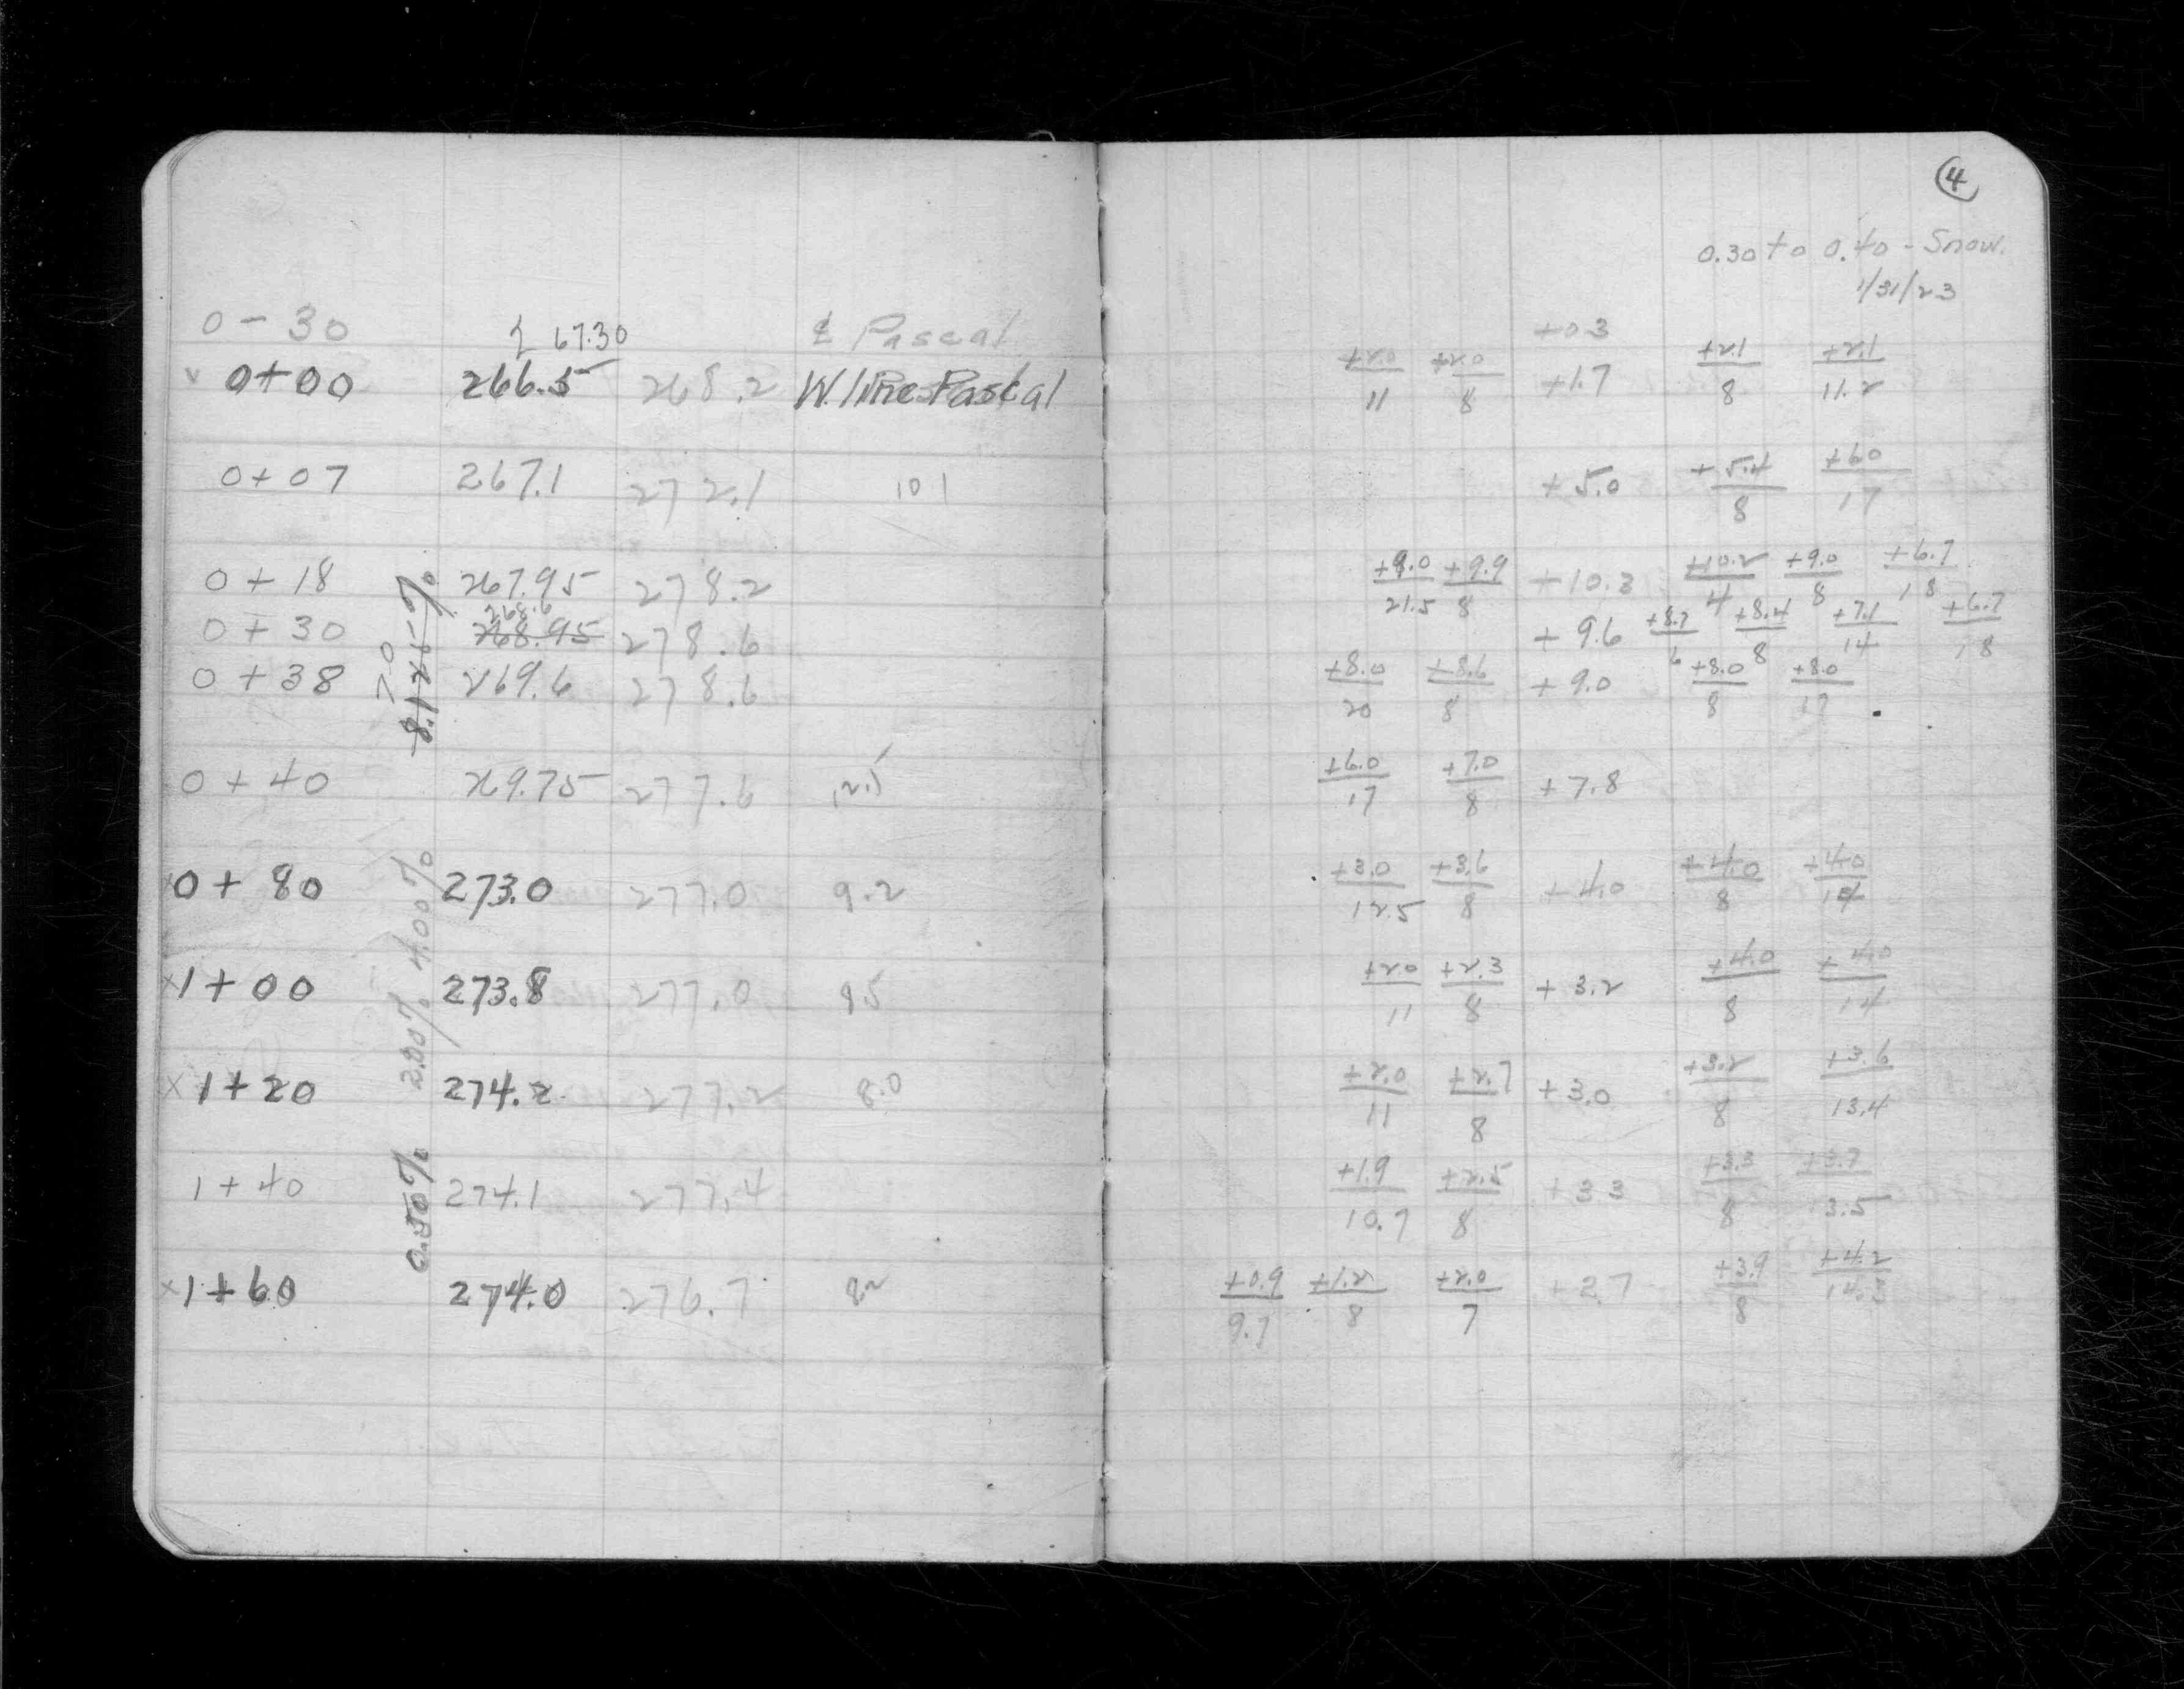 0 - 30 ₵ Pascal
67.30
0+00 266.5 268.2 W. line Pascal
0+07 267.1 272.1 101
0+18 267.95 278.2
268.6
0+30 268.95 278.6
0+38 269.6 278.6
0+40 269.75 277.6
0+80 273.0 277.0 9.2
1+00 273.8 277.0 95
1+20 274.2 277.2 8.0
1+40 274.1 277.4
1+60 274.0 276.7
7.0
8.125%
4.00%
2.00%
0.50%
4
0.30 to 0.40 - Snow.
1/31/23
+0.3
+2.0/11 +2.0/8 +1.7 +2.1/8 +2.1/11.2
+5.0 +5.4/8 +6.0/17
+9.0/21.5 +9.9/8 +10.3 +10.2/4 +9.0/8 +6.7/18
+9.6 +8.7/6 +8.4/8 +7.1/14 +6.7/18
+8.0/20 +8.6/8 +9.0 +8.0/8 +8.0/17
+6.0/17 +7.0/8 +7.8
+3.0/12.5 +3.6/8 +4.0 +4.0/8 +4.0/14
+2.0/11 +2.3/8 +3.2 +4.0/8 +4.0/14
+2.0/11 +2.7/8 +3.0 +3.2/8 +3.6/13.4
+1.9/10.7 +2.5/8 +3.3 +3.3/8 +3.7/13.5
+0.9/9.7 +1.2/8 +2.0/7 +2.7 +3.9/8 +4.2/14.3